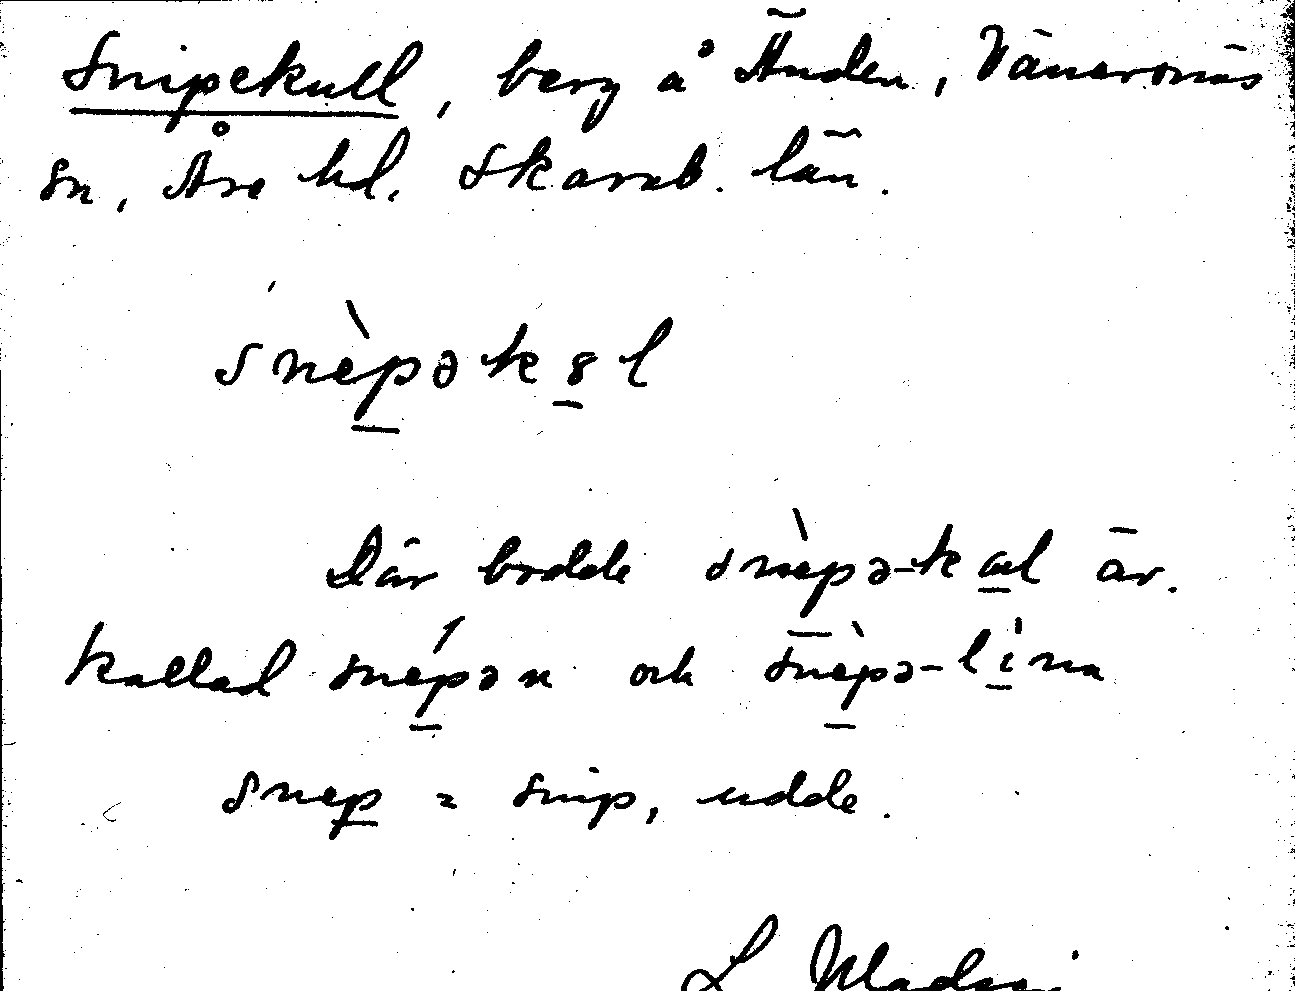 Snipekull, berg å Änden, Vänersnäs
sn, Åse hd. Skarab. län.
snèpək8l
Där bodde snèpə-kal är.
kallad snépən och snèpə-lina
snep = snip, udde.
L